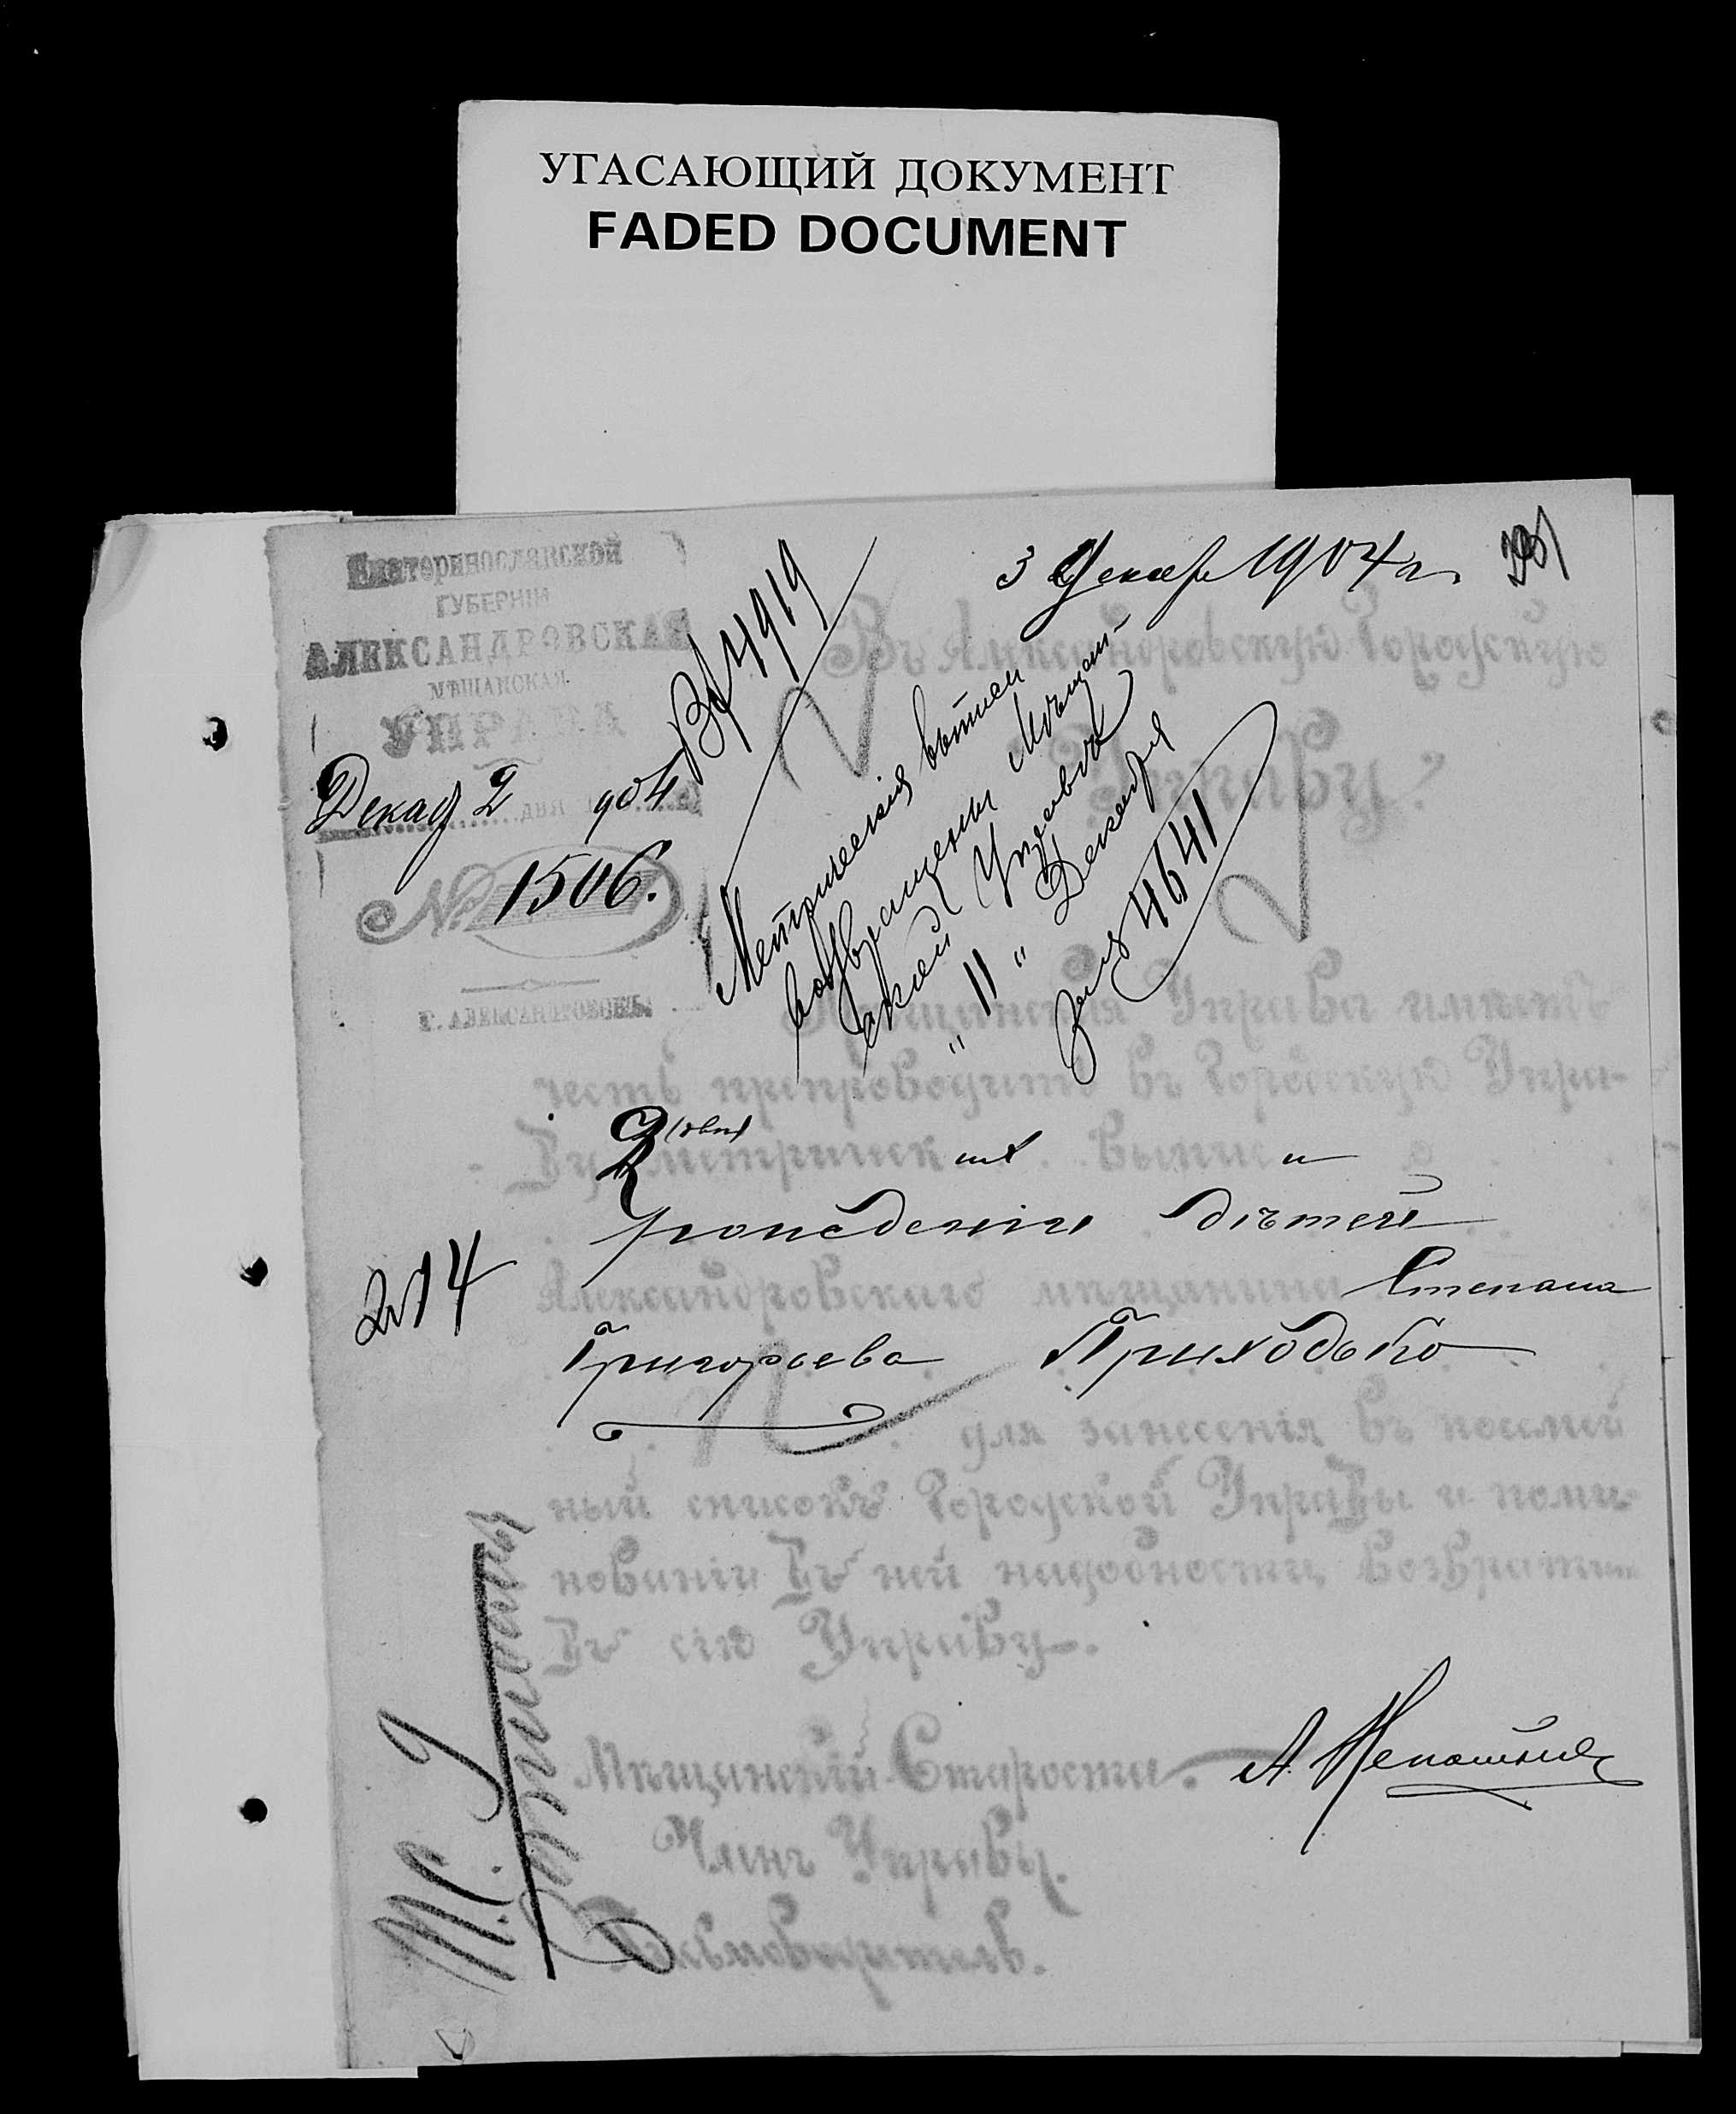 УГАСАЮЩИЙ ДОКУМЕНТ
FADED DOCUMENT
3 Декабр 1904 г.
Екатеринославской
ГУБЕРНІИ
АЛЕКСАНДРОВСКАЯ
МѢЩАНСКАЯ
УПРАВА
Декаб 2 дня 904
№ 1506.
Г. АЛЕКСАНДРОВСКЪ
Вх 4919
Въ Александровскую Городскую
Управу.
Метрическія выписи
возвращены Мѣщан-
ской Управѣ
" 11 " Декабря
за № 4641
Мѣщанская Управа имѣетъ
честь препроводить въ Городскую Упра-
ву 2 (двѣ) метрическихъ выписи
рожденіи дѣтей
214
Александровскаго мѣщанина Степана
Григорьева Приходько
для занесенія въ посемей
ный списокъ Городской Управы и поми-
нованіи въ ней надобности, возврати
въ сію Управу.
Мѣщанскій Староста
Членъ Управы.
Дѣлопроизводитель.